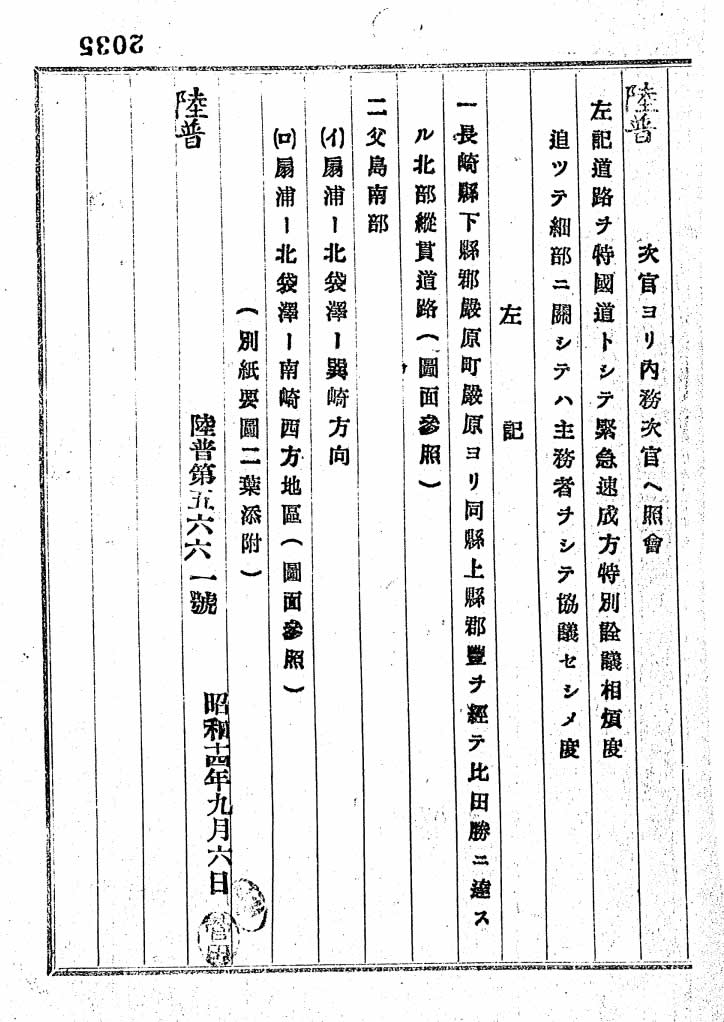 2035
陸普
次官ヨリ內務次官ヘ照會
左記道路ヲ特國道トシテ緊急速成方特別詮議相煩度
追ツテ細部ニ關シテハ主務者ヲシテ協議セシメ度
左記
一長崎縣下縣郡嚴原町嚴原ヨリ同縣上縣郡豐ヲ經テ比田勝ニ達ス
ル北部縱貫道路(圖面參照)
二父島南部
(イ)扇浦ー北袋澤ー巽崎方向
(ロ)扇浦ー北袋澤ー南崎西方地區(圖面參照)
(別紙要圖二葉添附)
陸普 陸普第五六六一號 昭和十四年九月六日